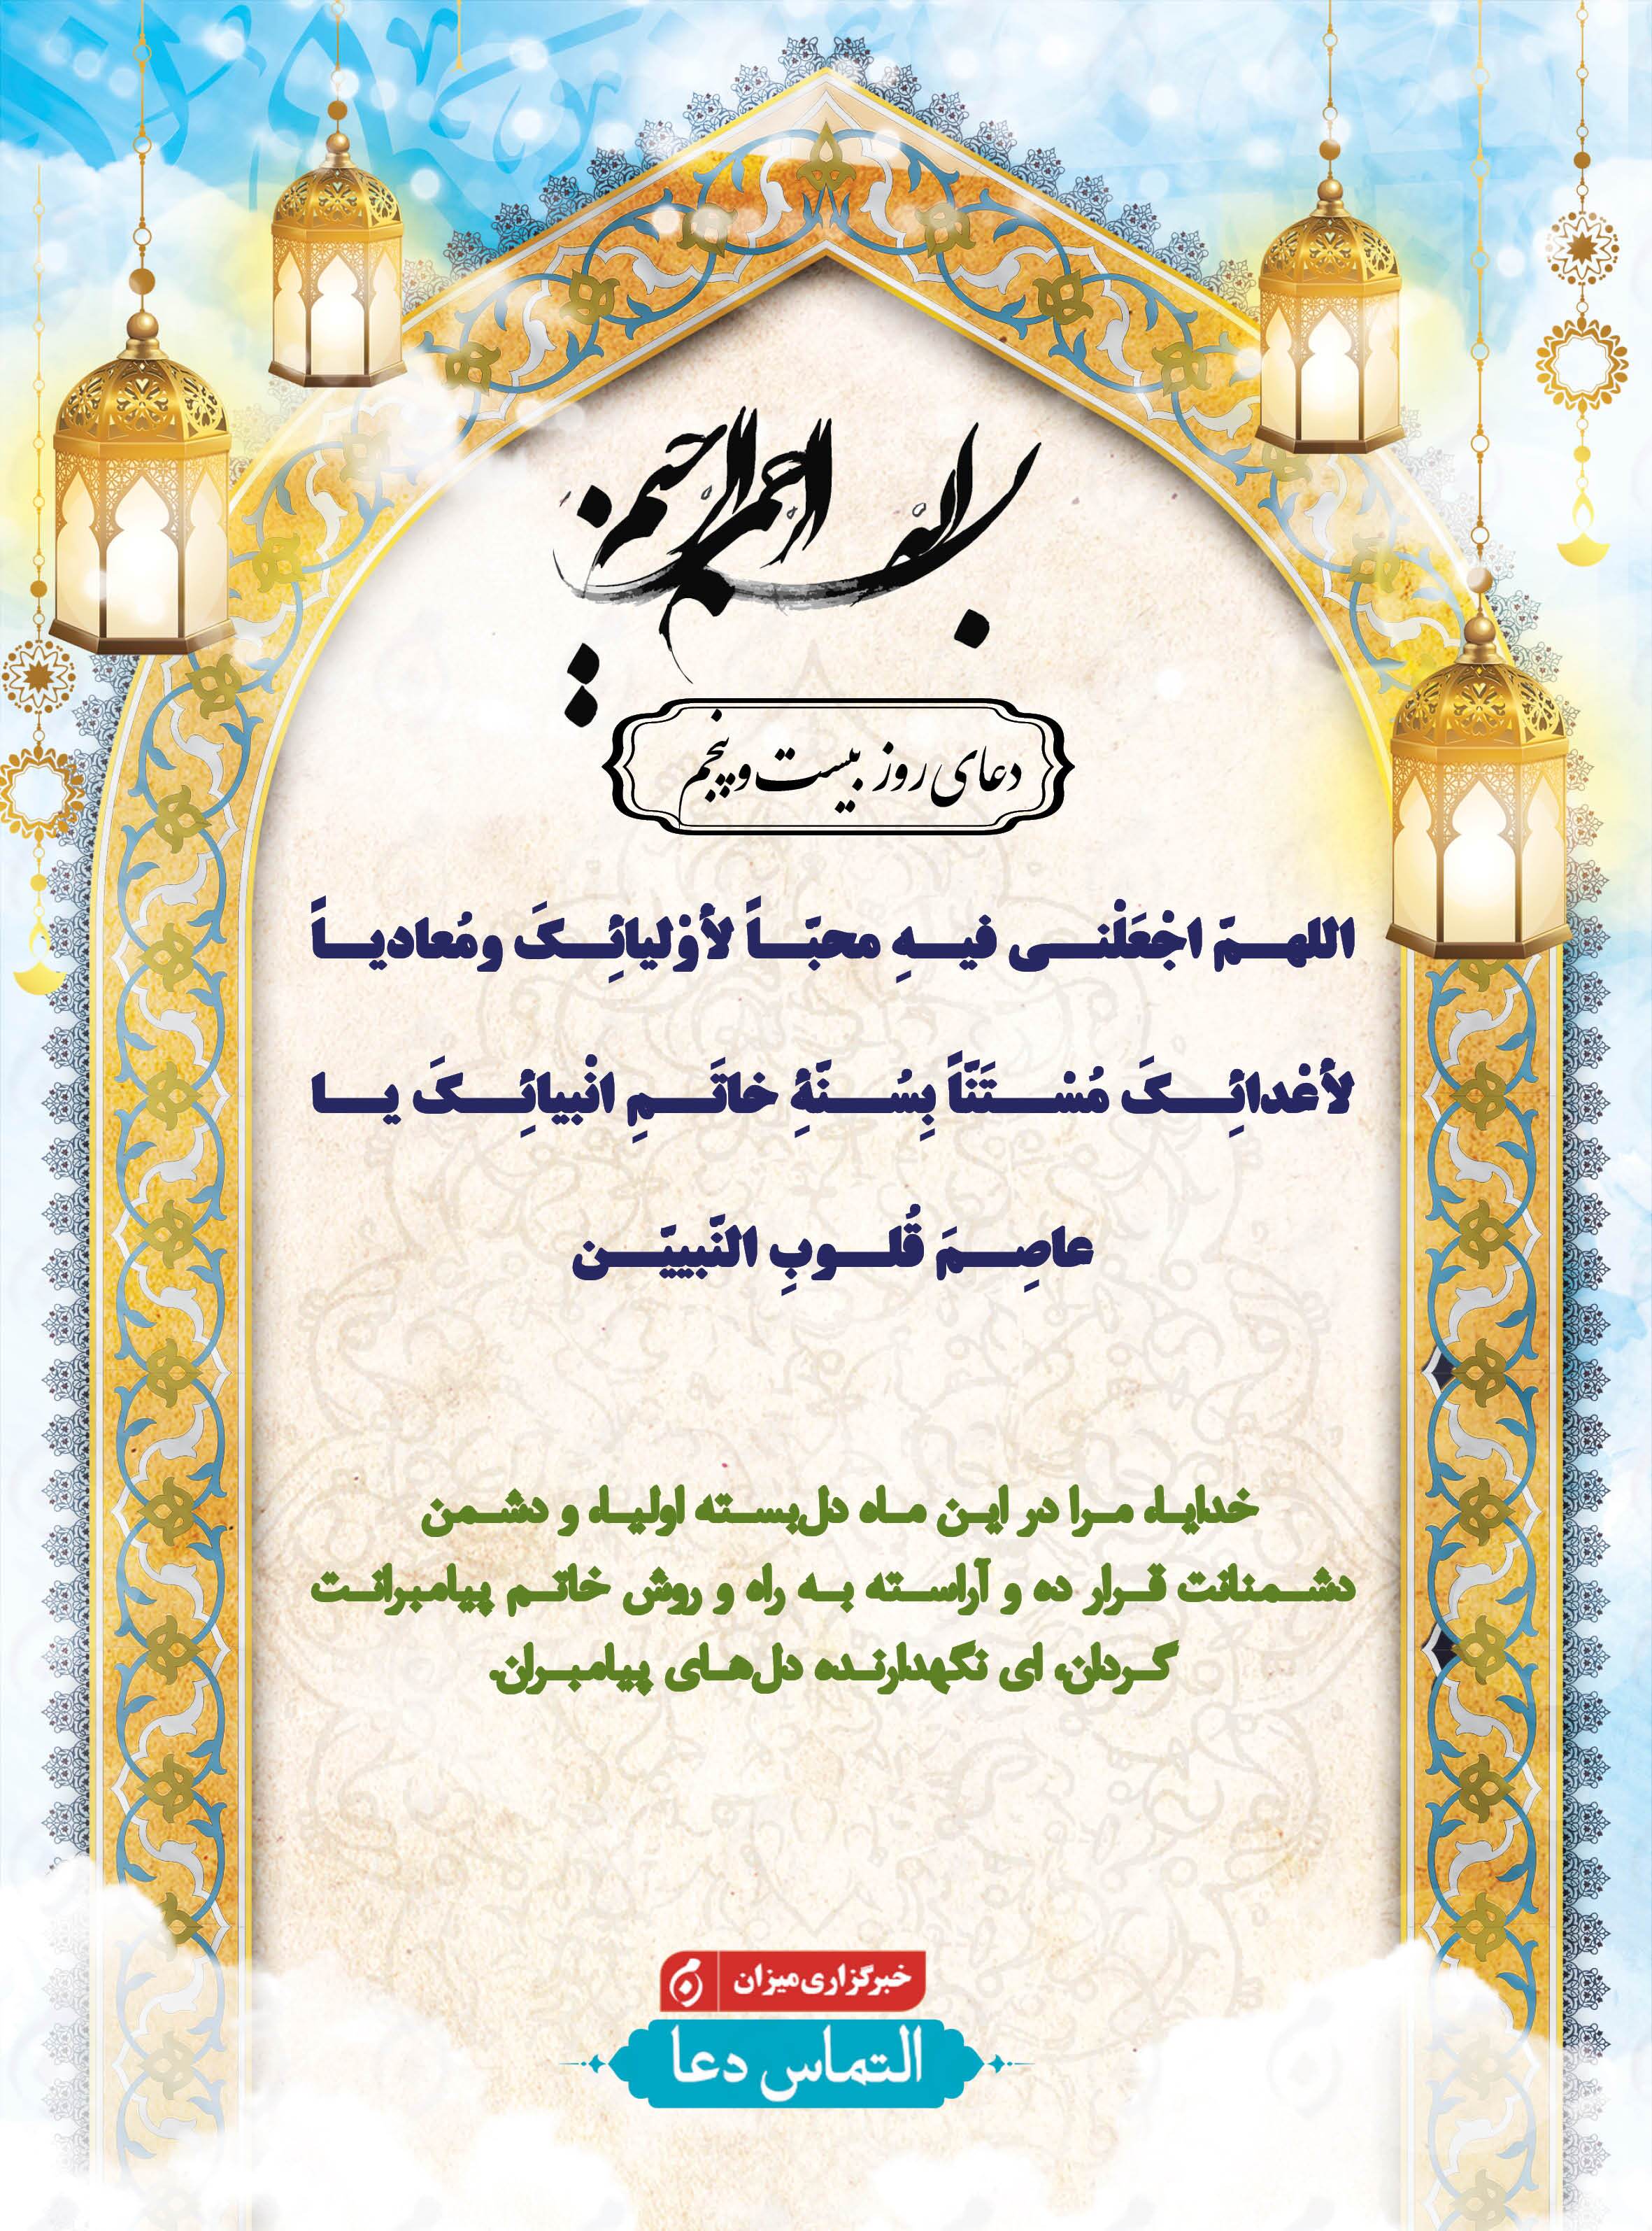 بسم الله الرحمن الرحیم
دعای روز بیست و پنجم
اللهمّ اجْعَلْنی فیهِ محبّاً لأوْلیائِکَ ومُعادیاً
لأعْدائِکَ مُسْتَنّاً بِسُنّةِ خاتَمِ انْبیائِکَ یا
عاصِمَ قُلوبِ النّبییّن
خدایا، مرا در این ماه دل‌بسته اولیاء و دشمن
دشمنانت قرار ده و آراسته به راه و روش خاتم پیامبرانت
گردان، ای نگهدارنده دل‌های پیامبران.
خبرگزاری میزان
التماس دعا